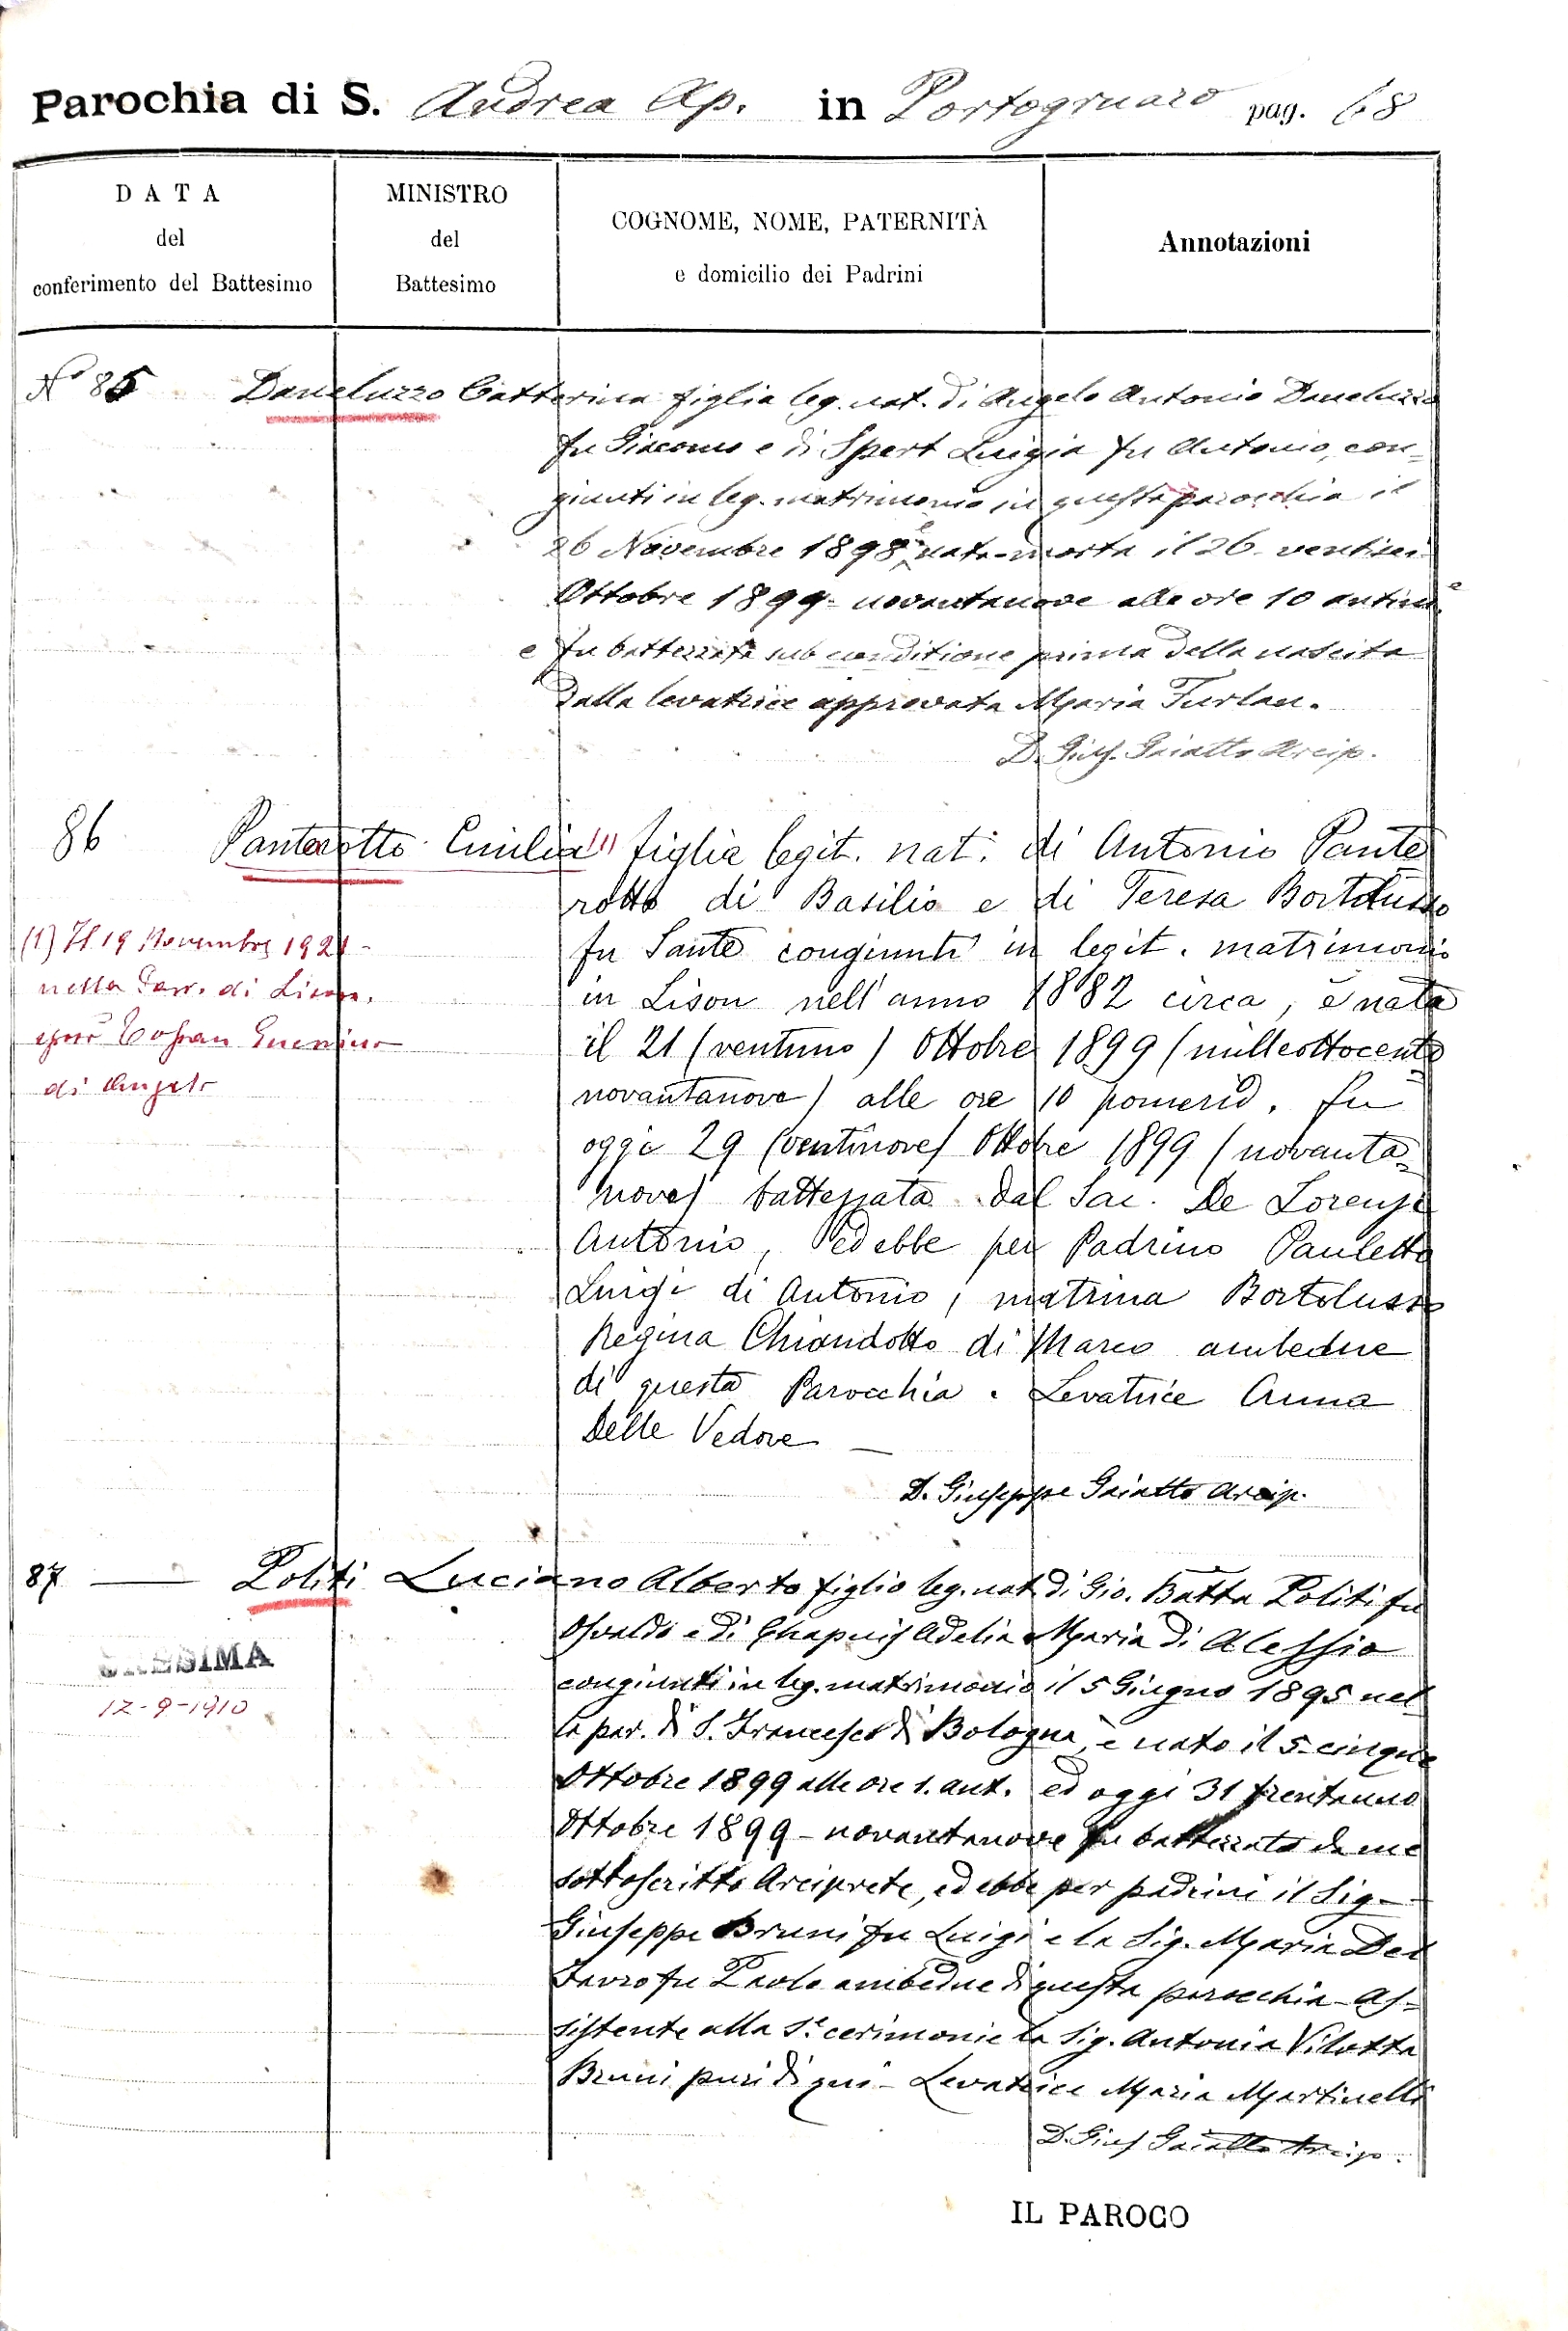 Parochia di S. Andrea Ap. in Portogruaro pag. 68
DATA
del
conferimento del Battesimo
MINISTRO
del
Battesimo
COGNOME, NOME, PATERNITÀ
e domicilio dei Padrini
Annotazioni
N° 85 Daneluzzo Catterina figlia leg. nat. di Angelo Antonio Daneluzzo
fu Giacomo e di Spert Luigia fu Antonio, con-
giunti in leg. matrimonio in questa parocchia il
26 Novembre 1898, è nata-morta il 26 ventisei
Ottobre 1899- novantanove alle ore 10 antim.e
e fu battezzata sub conditione prima della nascita
dalla levatrice approvata Maria Furlan.
D. Gius. Gaiatto Arcip.
86 Panterotto Emilia (1) figlia legit. nat. di Antonio Pante
rotto di Basilio e di Teresa Bortolusso
fu Sante congiunti in legit. matrimonio
in Lison nell'anno 1882 circa, è nata
il 21 (ventuno) Ottobre 1899 (milleottocento
novantanove) alle ore 10 pomerid. Fu
oggi 29 (ventinove) Ottobre 1899 (novanta=
nove) battezzata dal Sac. De Lorenzi
Antonio, ed ebbe per Padrino Pauletto
Luigi di Antonio, matrina Bortolusso
Regina Chiandotto di Marco ambedue
di questa Parocchia. Levatrice Anna
Delle Vedove —
D. Giuseppe Gaiatto Arcip.
(1) Il 19 Novembre 1921
nella Parr. di Lison.
sposò
di Angelo
87 — Politi Luciano Alberto figlio leg. nat. di Gio. Batta Politi fu
Osvaldo e di Chapuis Adelia Maria di Alessio
congiunti in leg. matrimonio il 5 Giugno 1895 nel
la par. di S. Francesco di Bologna, è nato il 5-cinque
Ottobre 1899 alle ore 1. ant. ed oggi 31 trentauno
Ottobre 1899 - novantanove fu battezzato da me
sottoscritto Arciprete, ed ebbe per padrini il Sig-
Giuseppe Bruni fu Luigi e la Sig. Maria Del
fu Paolo ambedue di questa parocchia - As-
sistente alla S.e cerimonie la Sig. Antonia Vilotta
Bruni puri di qui - Levatrice Maria Martinelli
D. Gius Gaiatto Arcip.
CRESIMA
12-9-1910
IL PAROCO